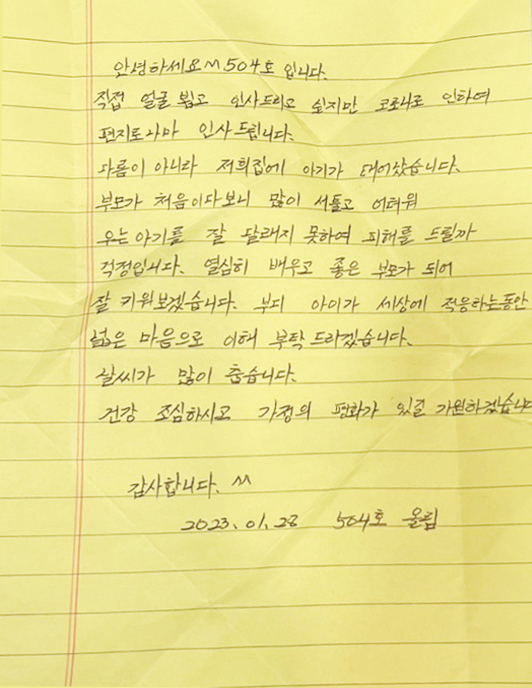 안녕하세요^^ 504호 입니다.
직접 얼굴 뵙고 인사드리고 싶지만 코로나로 인하여
편지로나마 인사드립니다.
다름이 아니라 저희집에 아기가 태어났습니다.
부모가 처음이다보니 많이 서툴고 어려워
우는아기를 잘 달래지 못하여 피해를 드릴까
걱정입니다. 열심히 배우고 좋은 부모가 되어
잘 키워보겠습니다. 부디 아이가 세상에 적응하는동안
넓은 마음으로 이해 부탁드리겠습니다.
날씨가 많이 춥습니다.
건강 조심하시고 가정의 평화가 있길 기원하겠습니다
감사합니다. ^^
2023. 01. 28 504호 올림